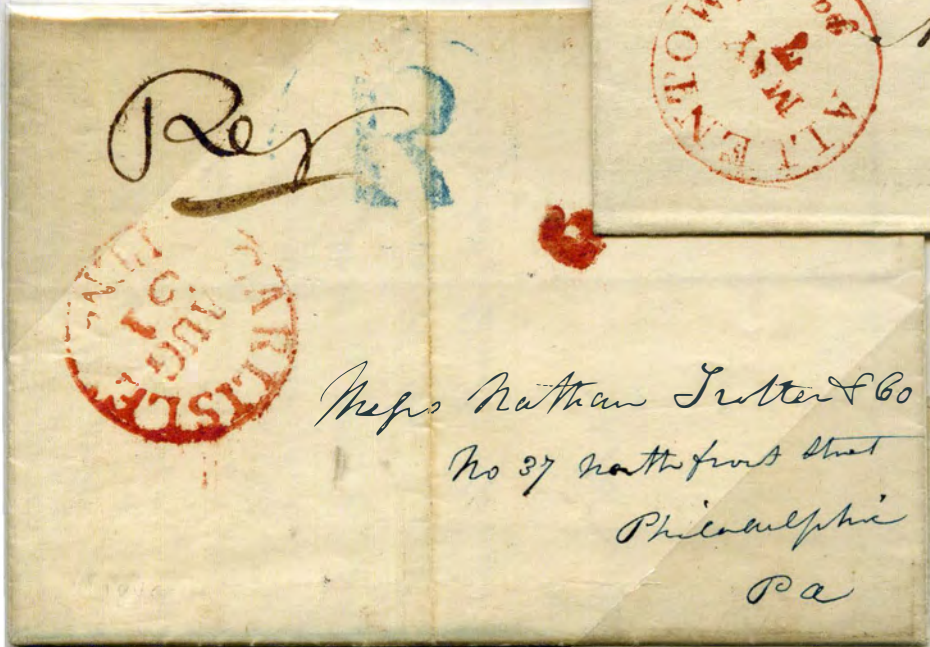 ALLENTOWN Pa
MAY
7
Reg R
CARLISLE
AUG
10
Messrs Nathan Trotter & Co
No 37 north front Street
Philadelphia
Pa